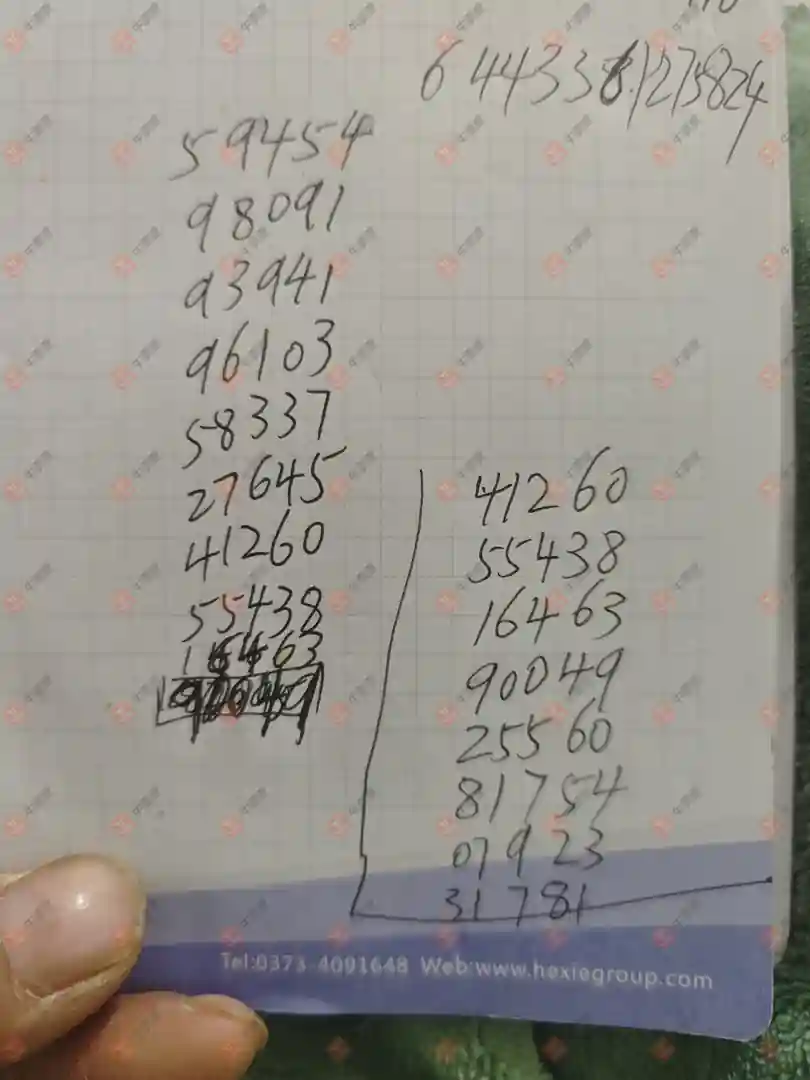 59454
98091
93941
96103
58337
27645
41260
55438
16463
41260
55438
16463
90049
25560
81754
07923
31781
Tel:0373-4091648 Web:www.hexiegroup.com